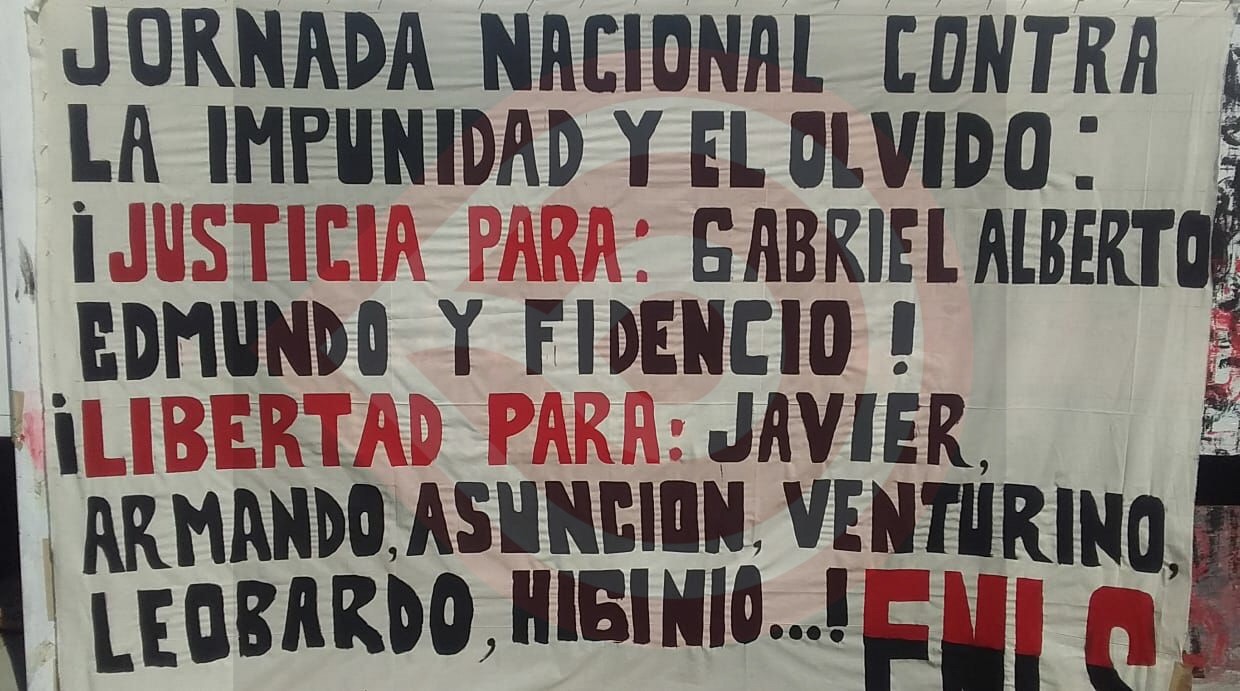 JORNADA NACIONAL CONTRA
LA IMPUNIDAD Y EL OLVIDO:
¡JUSTICIA PARA: GABRIEL ALBERTO
EDMUNDO Y FIDENCIO!
¡LIBERTAD PARA: JAVIER,
ARMANDO, ASUNCION, VENTURINO,
LEOBARDO, HIGINIO...!
FNLS